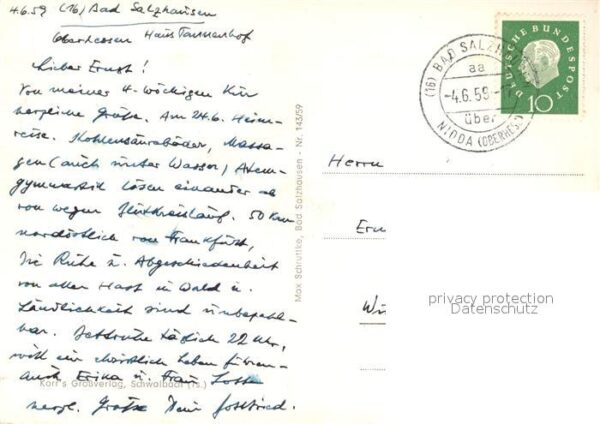 4.6.59 (16) Bad Salzhausen
Oberhessen Haus Tannenhof
Lieber Ernst!
Von meiner 4-wöchigen Kur
herzliche Grüße. Am 24.6. Heim-
reise. Kohlensäurebäder, Massa-
gen (auch unter Wasser), Atem-
gymnastik lösen einander ab
von wegen Blutkreislauf. 50 km
nordöstlich von Frankfurt,
Die Ruhe u. Abgeschiedenheit
von aller Hast in Wald u.
Ländlichkeit sind unbezahl-
bar. Bettruhe täglich 22 Uhr,
will ein christlich Leben führen
auch Erika u. Frau Lotte
herzl. Grüße Dein Gottfried.
Korr's Großverlag, Schwalbach (Ts.)
Max Schruttke, Bad Salzhausen - Nr. 143/59
(16) BAD SALZH
aa
-4.6.59-
über
NIDDA (OBERHES
DEUTSCHE BUNDESPOST
10
Herrn
privacy protection
Datenschutz